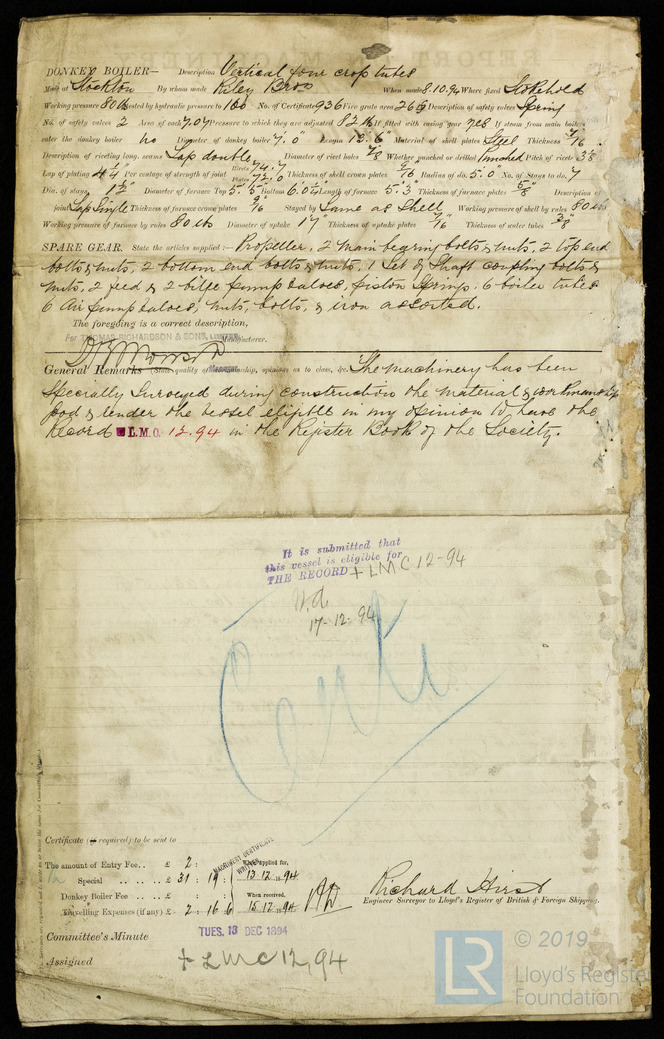 DONKEY BOILER— Description Vertical four crop tubes
Made at Stockton By whom made Riley Bros When made 8.10.94 Where fixed Stokehold
Working pressure 80 lbs tested by hydraulic pressure to 160 No. of Certificate 936 Fire grate area 26 Description of safety valves Spring
No. of safety valves 2 Area of each 7.07 Pressure to which they are adjusted 82 lbs If fitted with easing gear yes If steam from main boilers
enter the donkey boiler no Diameter of donkey boiler 7' 0" Length 13' 6" Material of shell plates Steel Thickness 7/16
Description of riveting long. seams Lap double Diameter of rivet holes 7/8 Whether punched or drilled Punched Pitch of rivets
Lap of plating 4 1/4 Per centage of strength of joint Rivets 74.7 Plates 72.0 Thickness of shell crown plates 9/16 Radius of do. 5.0" No. of Stays to do. 7
Dia. of stays 1 1/2" Diameter of furnace Top 5' 5" Bottom 6.0 1/4" Length of furnace 5' 3" Thickness of furnace plates 5/8" Description of
joint Lap Single Thickness of furnace crown plates 9/16" Stayed by Same as Shell Working pressure of shell by rules 80 lbs
Working pressure of furnace by rules 80 lbs Diameter of uptake 17" Thickness of uptake plates 7/16" Thickness of water tubes 3/8"
SPARE GEAR. State the articles supplied :— Propeller, 2 main bearing bolts & nuts, 2 top end
bolts & nuts, 2 bottom end bolts & nuts, 1 Set of Shaft coupling bolts &
nuts, 2 feed & 2 bilge pump valves, piston Springs 6 boiler tubes
6 Air pump valves, nuts, bolts, & iron assorted.
The foregoing is a correct description,
For THOMAS RICHARDSON & SONS, LIMITED Manufacturer.
General Remarks (State quality of workmanship, opinions as to class, &c. The machinery has been
Specially Surveyed during construction the material & workmanship
good & render the vessel eligible in my opinion to have the
Record L.M.C. 12.94 in the Register Book of the Society.
It is submitted that
this vessel is eligible for
THE RECORD + LMC 12-94
17-12-94
Certi
Certificate (if required) to be sent to
MACHINERY CERTIFICATE WRITTEN
The amount of Entry Fee.. £ 2 : When applied for,
Special .. £ 31 : 19 : 13.12.1894
Donkey Boiler Fee .. £ When received,
Travelling Expenses (if any) £ 2 : 16 : 6 15.12.1894
Richard Hirst
Engineer Surveyor to Lloyd's Register of British & Foreign Shipping.
Committee's Minute TUES. 18 DEC 1894
Assigned + LMC 12,94
LR © 2019
Lloyd's Register
Foundation